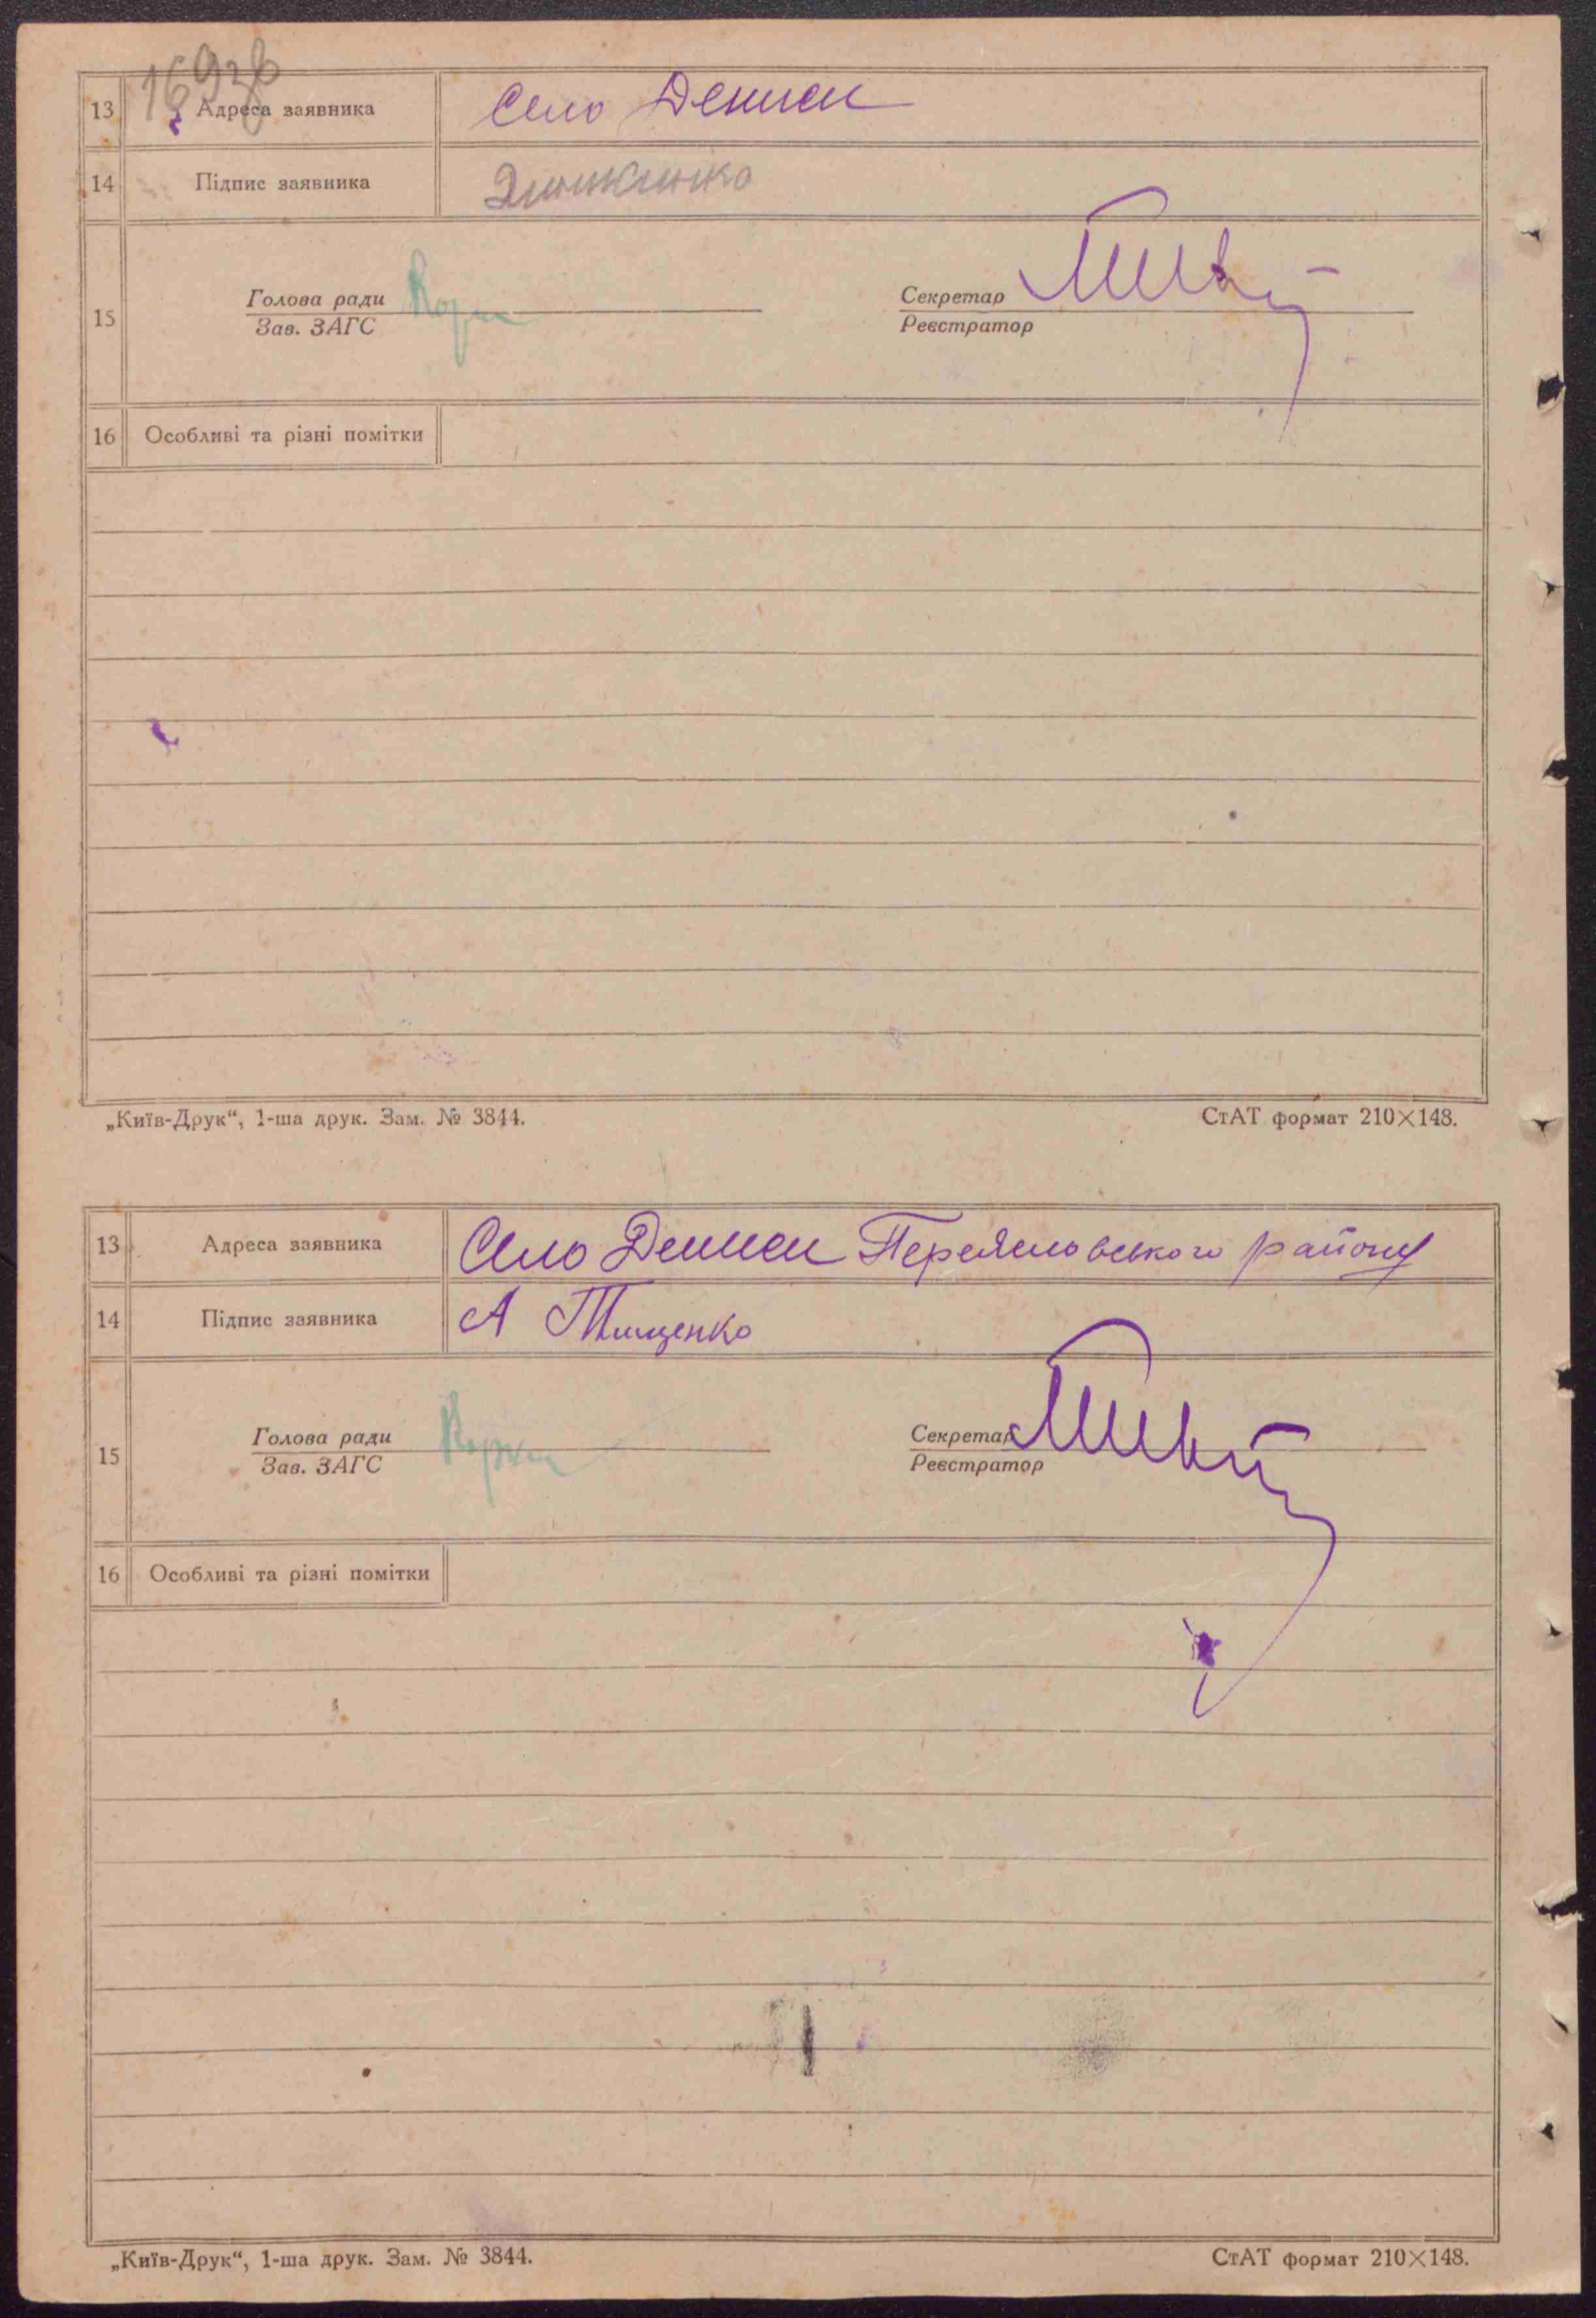 13 Адреса заявника Село Дениси
14 Підпис заявника
15 Голова ради Секретар
Зав. ЗАГС Реєстратор
16 Особливі та різні помітки
„Київ-Друк“, 1-ша друк. Зам. № 3844. СтАТ формат 210×148.
13 Адреса заявника Село Дениси Переяславського району
14 Підпис заявника А Тищенко
15 Голова ради Секретар
Зав. ЗАГС Реєстратор
16 Особливі та різні помітки
„Київ-Друк“, 1-ша друк. Зам. № 3844. СтАТ формат 210×148.